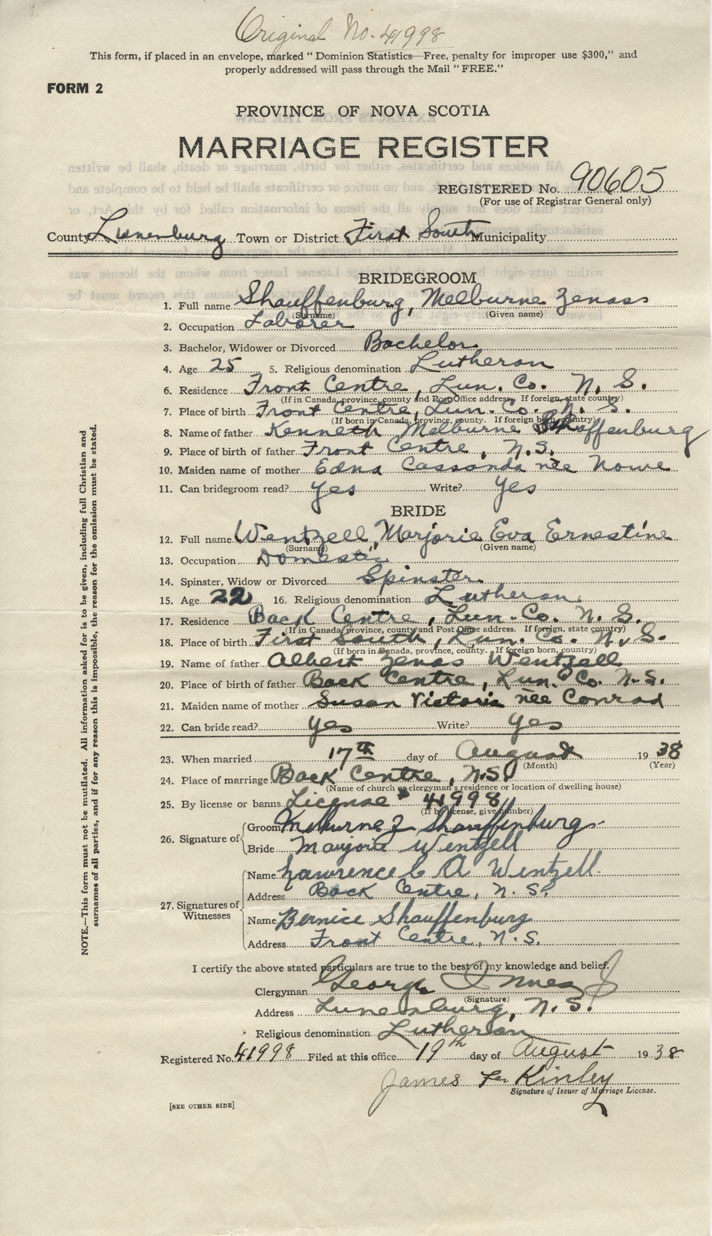 Original No. 41998
This form, if placed in an envelope, marked "Dominion Statistics—Free, penalty for improper use $300," and
properly addressed will pass through the Mail "FREE."
FORM 2
PROVINCE OF NOVA SCOTIA
MARRIAGE REGISTER
REGISTERED No. 90605
(For use of Registrar General only)
County Lunenburg Town or District First South Municipality
BRIDEGROOM
1. Full name Shauffenburg, Melburne Zenass
(Surname) (Given name)
2. Occupation Laborer
3. Bachelor, Widower or Divorced Bachelor
4. Age 25 5. Religious denomination Lutheran
6. Residence Front Centre, Lun. Co. N. S.
(If in Canada, province, county and Post Office address. If foreign, state county)
7. Place of birth Front Centre, Lun. Co. N. S.
(If born in Canada, province, county. If foreign born, country)
8. Name of father Kenneth Melburne Shauffenburg
9. Place of birth of father Front Centre, N.S.
10. Maiden name of mother Edna Cassanda née Nowe
11. Can bridegroom read? Yes Write? Yes
BRIDE
12. Full name Wentzell, Marjorie Eva Ernestine
(Surname) (Given name)
13. Occupation Domestic
14. Spinster, Widow or Divorced Spinster
15. Age 22 16. Religious denomination Lutheran
17. Residence Back Centre, Lun. Co. N. S.
(If in Canada, province, county and Post Office address. If foreign, state county)
18. Place of birth First South, Lun. Co. N. S.
(If born in Canada, province, county. If foreign born, country)
19. Name of father Albert Zenas Wentzell
20. Place of birth of father Back Centre, Lun. Co. N.S.
21. Maiden name of mother Susan Victoria née Conrad
22. Can bride read? Yes Write? Yes
23. When married 17th day of August 1938
(Month) (Year)
24. Place of marriage Back Centre, N.S.
(Name of church or clergyman's residence or location of dwelling house)
25. By license or banns License # 41998
(If by license, give number)
26. Signature of
Groom Melburne Z Shauffenburg
Bride Marjorie Wentzell
27. Signatures of Witnesses
Name Lawrence C A Wentzell
Address Back Centre, N.S.
Name Bernice Shauffenburg
Address Front Centre, N.S.
I certify the above stated particulars are true to the best of my knowledge and belief.
Clergyman George Innes
(Signature)
Address Lunenburg, N.S.
Religious denomination Lutheran
Registered No. 41998 Filed at this office 19th day of August 1938
James Kinley
Signature of Issuer of Marriage License.
[SEE OTHER SIDE]
NOTE.—This form must not be mutilated. All information asked for is to be given, including full Christian and
surnames of all parties, and if for any reason this is impossible, the reason for the omission must be stated.